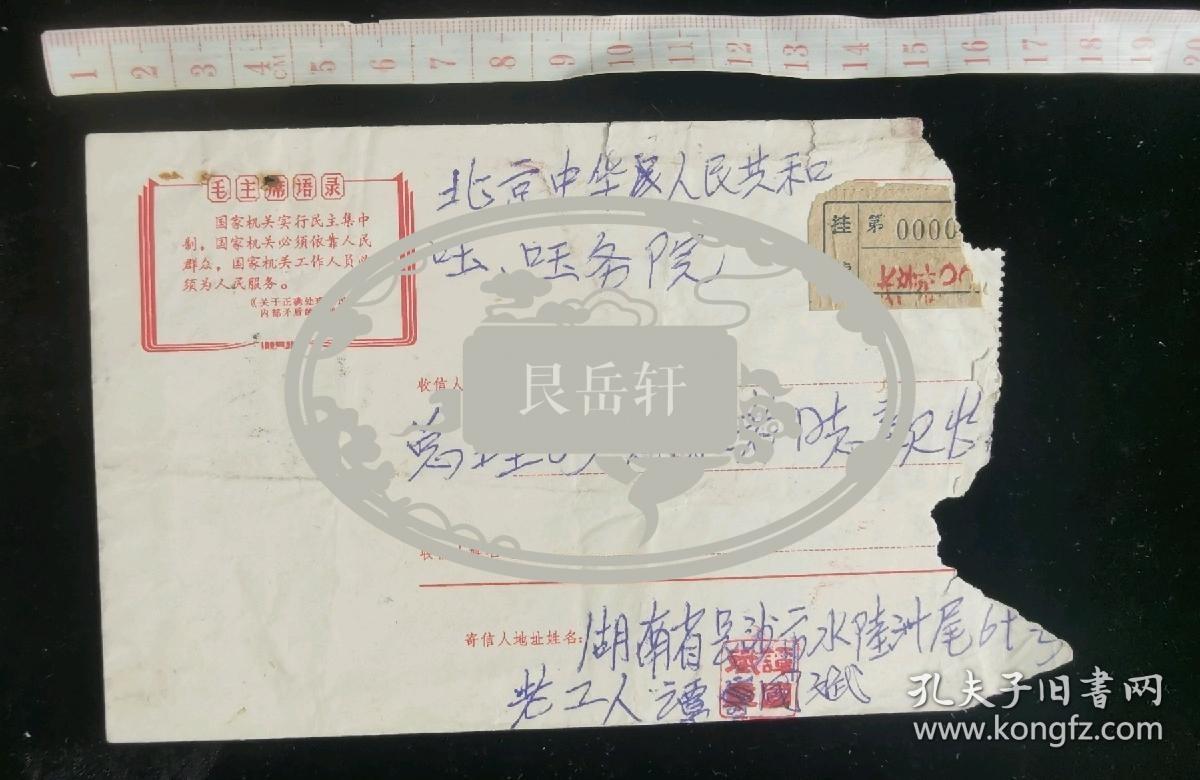 1 2 3 4 CM 5 6 7 8 9 10 11 12 13 14 15 16 17 18 19 20
毛主席语录
国家机关实行民主集中
制，国家机关必须依靠人民
群众，国家机关工作人员必
须为人民服务。
《关于正确处理
内部矛盾的
北京中华人民共和
呩、呩务院
挂 第 0000
收信人
总理
同志亲收
艮岳轩
寄信人地址姓名：
湖南省长沙市水陆洲尾64号
老工人 谭国斌
孔夫子旧书网
www.kongfz.com